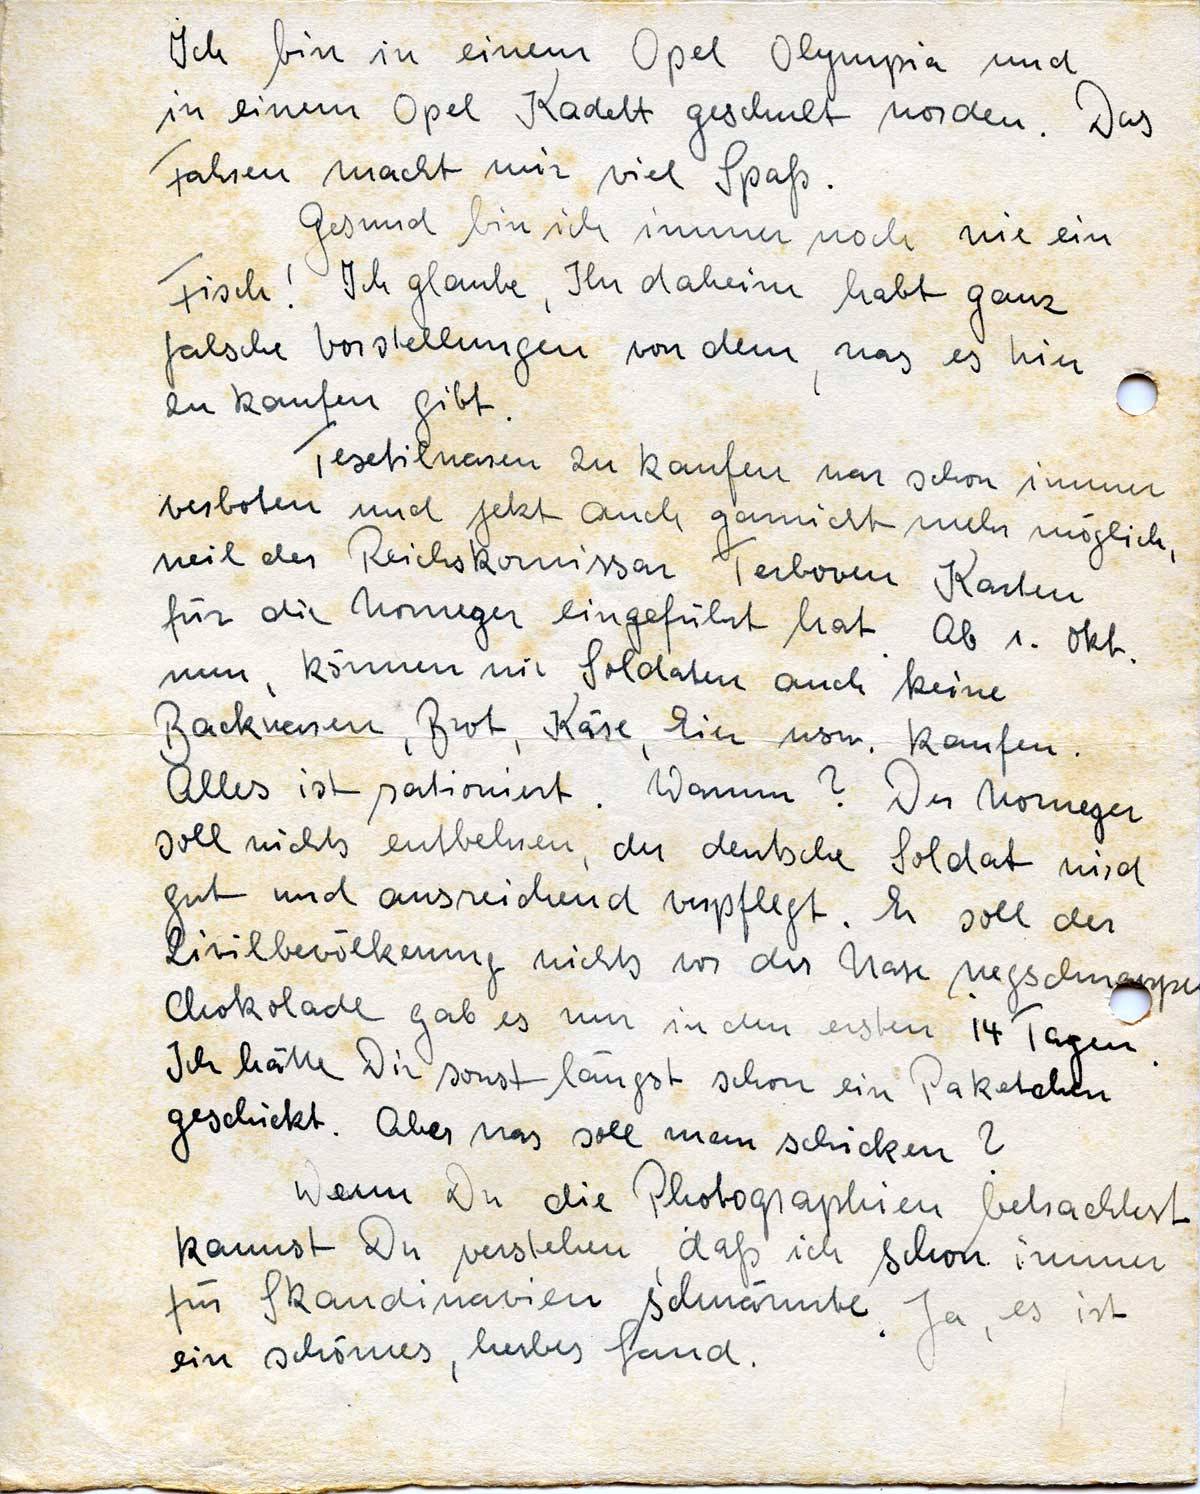 Ich bin in einem Opel Olympia und
in einem Opel Kadett geschult worden. Das
Fahren macht mir viel Spaß.
Gesund bin ich immer noch wie ein
Fisch! Ich glaube, Ihr daheim habt ganz
falsche Vorstellungen von dem, was es hier
zu kaufen gibt.
Texetilwaren zu kaufen war schon immer
verboten und jetzt auch garnicht mehr möglich,
weil der Reichskomissar Terboven Karten
für die Norweger eingeführt hat. Ab 1. Okt.
nun, können wir Soldaten auch keine
Backwaren, Brot, Käse, Eier usw. kaufen.
Alles ist rationiert. Warum? Der Norweger
soll nichts entbehren, der deutsche Soldat wird
gut und ausreichend verpflegt. Er soll der
Zivilbevölkerung nichts vor der Nase wegschnappen
Chokolade gab es nur in den ersten 14 Tagen.
Ich hätte Dir sonst längst schon ein Paketchen
geschickt. Aber was soll man schicken?
Wenn Du die Photographien betrachtest
kannst Du verstehen, daß ich schon immer
für Skandinavien schwärmte. Ja, es ist
ein schönes, herbes Land.